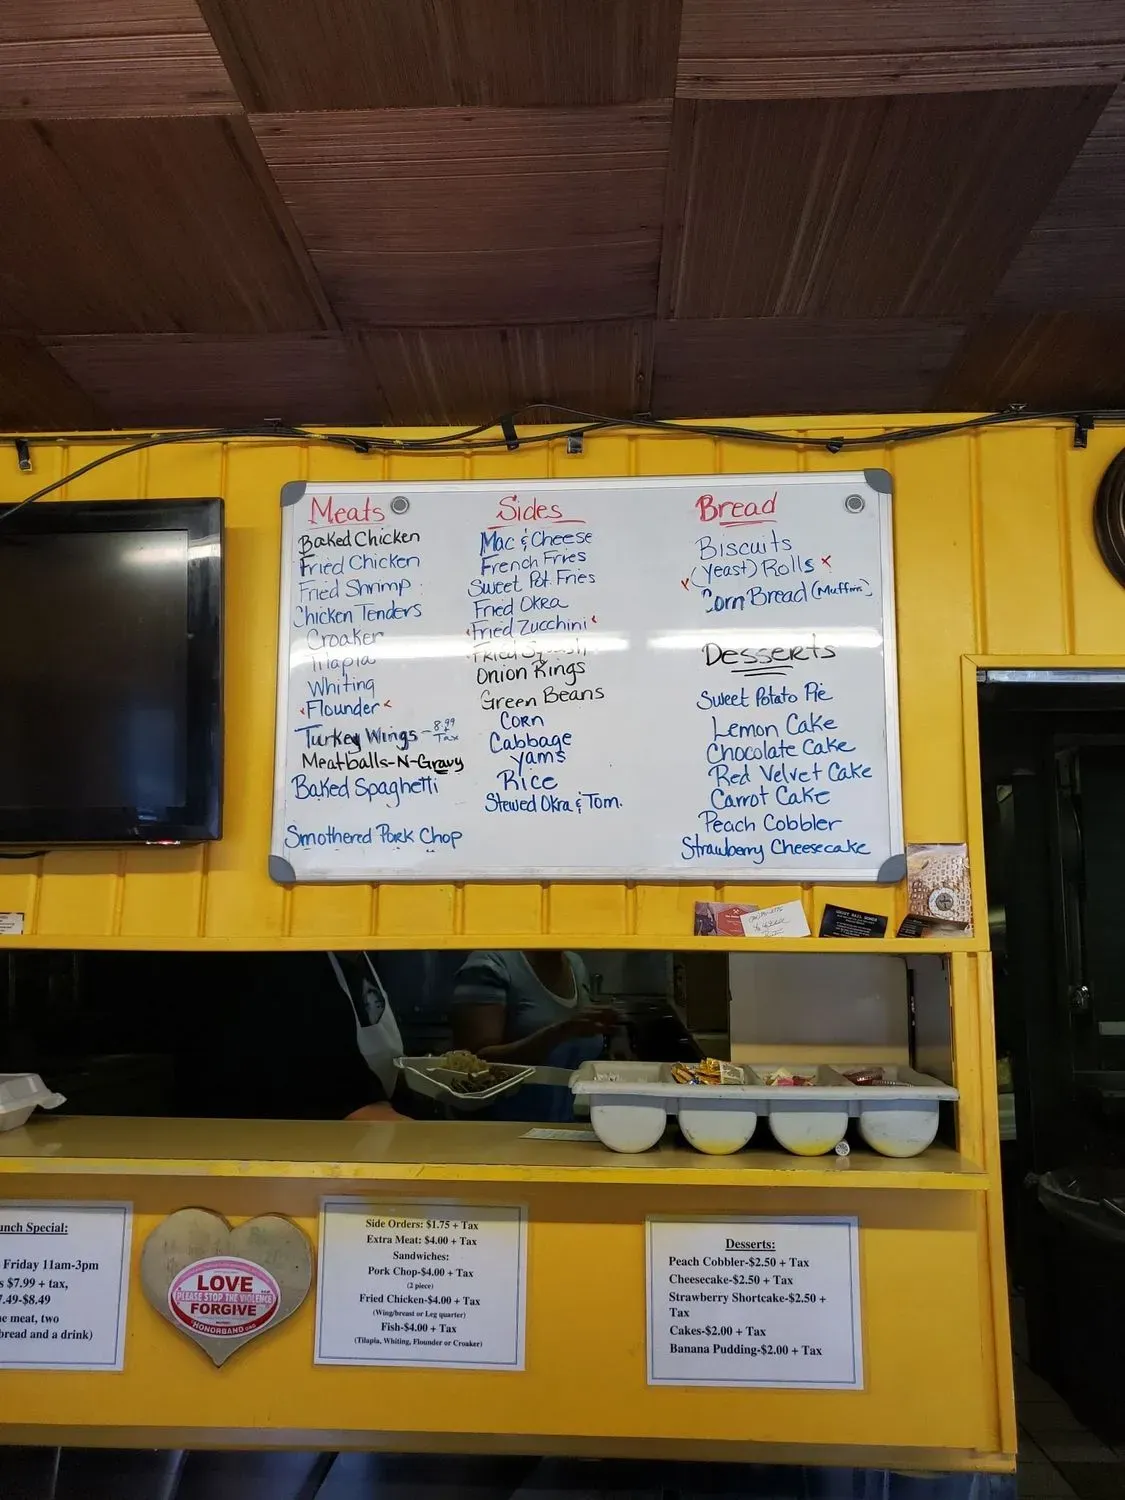 Meats
Baked Chicken
Fried Chicken
Fried Shrimp
Chicken Tenders
Croaker
Tilapia
Whiting
Flounder
Turkey Wings - 8.99
Tax
Meatballs-N-Gravy
Baked Spaghetti
Smothered Pork Chop
Sides
Mac & Cheese
French Fries
Sweet Pot. Fries
Fried Okra
Fried Zucchini
Fried Squash
Onion Rings
Green Beans
Corn
Cabbage
Yams
Rice
Stewed Okra & Tom.
Bread
Biscuits
(Yeast) Rolls
Corn Bread (Muffins)
Desserts
Sweet Potato Pie
Lemon Cake
Chocolate Cake
Red Velvet Cake
Carrot Cake
Peach Cobbler
Strawberry Cheesecake
unch Special:
Friday 11am-3pm
s $7.99 + tax,
.49-$8.49
e meat, two
bread and a drink)
LOVE
PLEASE STOP THE VIOLENCE
FORGIVE
HONORBAND.ORG
Side Orders: $1.75 + Tax
Extra Meat: $4.00 + Tax
Sandwiches:
Pork Chop-$4.00 + Tax
(2 piece)
Fried Chicken-$4.00 + Tax
(Wing/breast or Leg quarter)
Fish-$4.00 + Tax
(Tilapia, Whiting, Flounder or Croaker)
Desserts:
Peach Cobbler-$2.50 + Tax
Cheesecake-$2.50 + Tax
Strawberry Shortcake-$2.50 +
Tax
Cakes-$2.00 + Tax
Banana Pudding-$2.00 + Tax